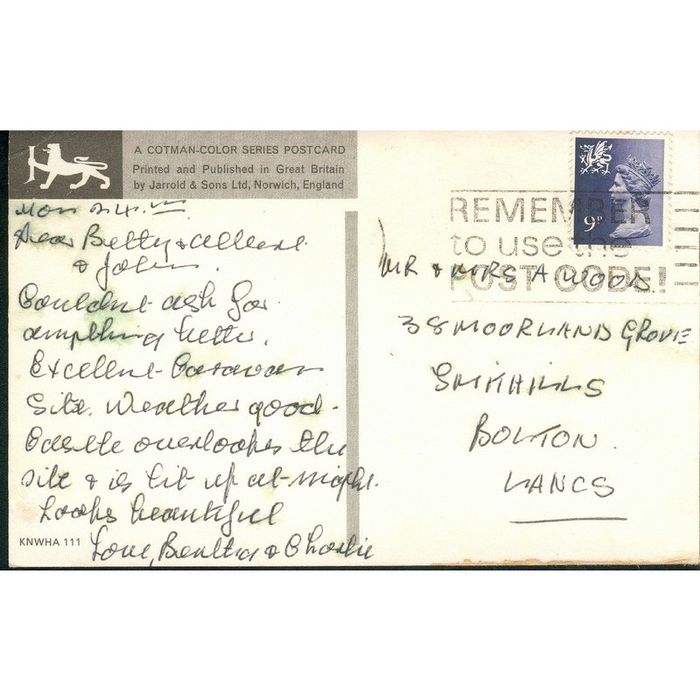 A COTMAN-COLOR SERIES POSTCARD
Printed and Published in Great Britain
by Jarrold & Sons Ltd, Norwich, England
Mon
Dear Betty &
& John.
Couldn't ask for
anything better.
Excellent Caravan
Site. Weather good.
Castle overlooks the
site & is lit up at night.
Looks beautiful
Love, & Charlie
KNWHA 111
9P
REMEMBER
to use the
POST CODE!
MR & MRS A WOOD.
38 MOORLAND GROVE
SMITHILLS
BOLTON.
LANCS